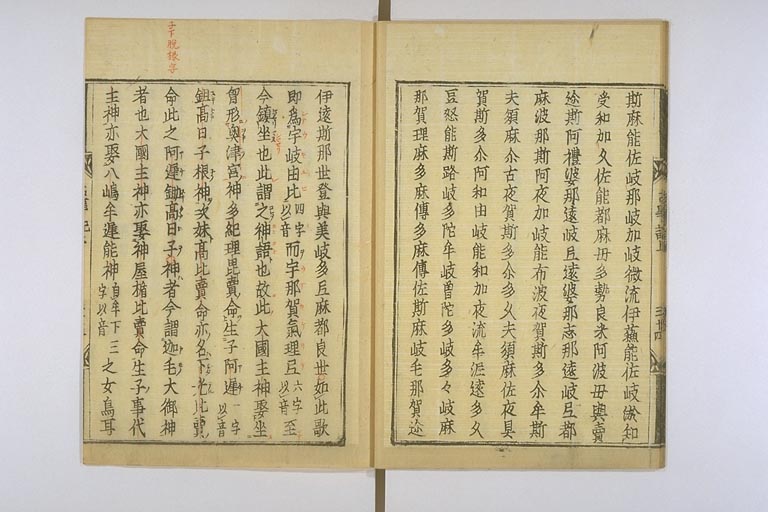 斯麻能佐岐那岐加岐微流伊蘓能佐岐淤知
受和加久佐能都麻毋多勢良米阿波毋與賣
迩斯阿禮婆那遠岐弖遠婆那志那遠岐弖都
麻波那斯阿夜加岐能布波夜賀斯多尒牟斯
夫須麻尒古夜賀斯多尒多久夫須麻佐夜具
賀斯多尒阿和由岐能和加夜流牟泥遠多久
豆怒能斯路岐多陀牟岐曽陀多岐多々岐麻
那賀理麻多麻傳多麻傳佐斯麻岐毛那賀迩
伊遠斯那世登與美岐多弖麻都良世如此歌
即為宇岐由比四字以音而宇那賀氣理弖六字以音至
今鎮坐也此謂之神語也故此大國主神娶坐
胷形奥津宮神多紀理毘賣命生子阿遲二字以音
鉏高日子根神次妹高比賣命亦名下光比賣
命此之阿遲鉏高日子神者今謂迦毛大御神
者也大國主神亦娶神屋楯比賣命生子事代
主神亦娶八嶋牟遲能神自牟下三字以音之女鳥耳